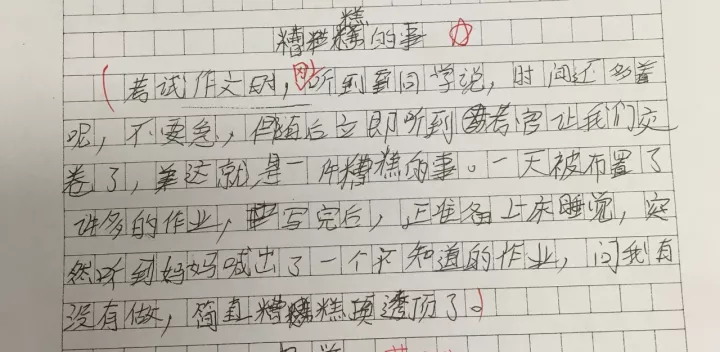 糟糕的事
考试作文时,听到同学说,时间还多着
呢,不要急,但随后立即听到考官让我们交
卷了,这就是一件糟糕的事。一天被布置了
许多的作业,写完后,正准备上床睡觉,突
然听到妈妈喊出了一个不知道的作业,问我有
没有做,简直糟糕透顶了。